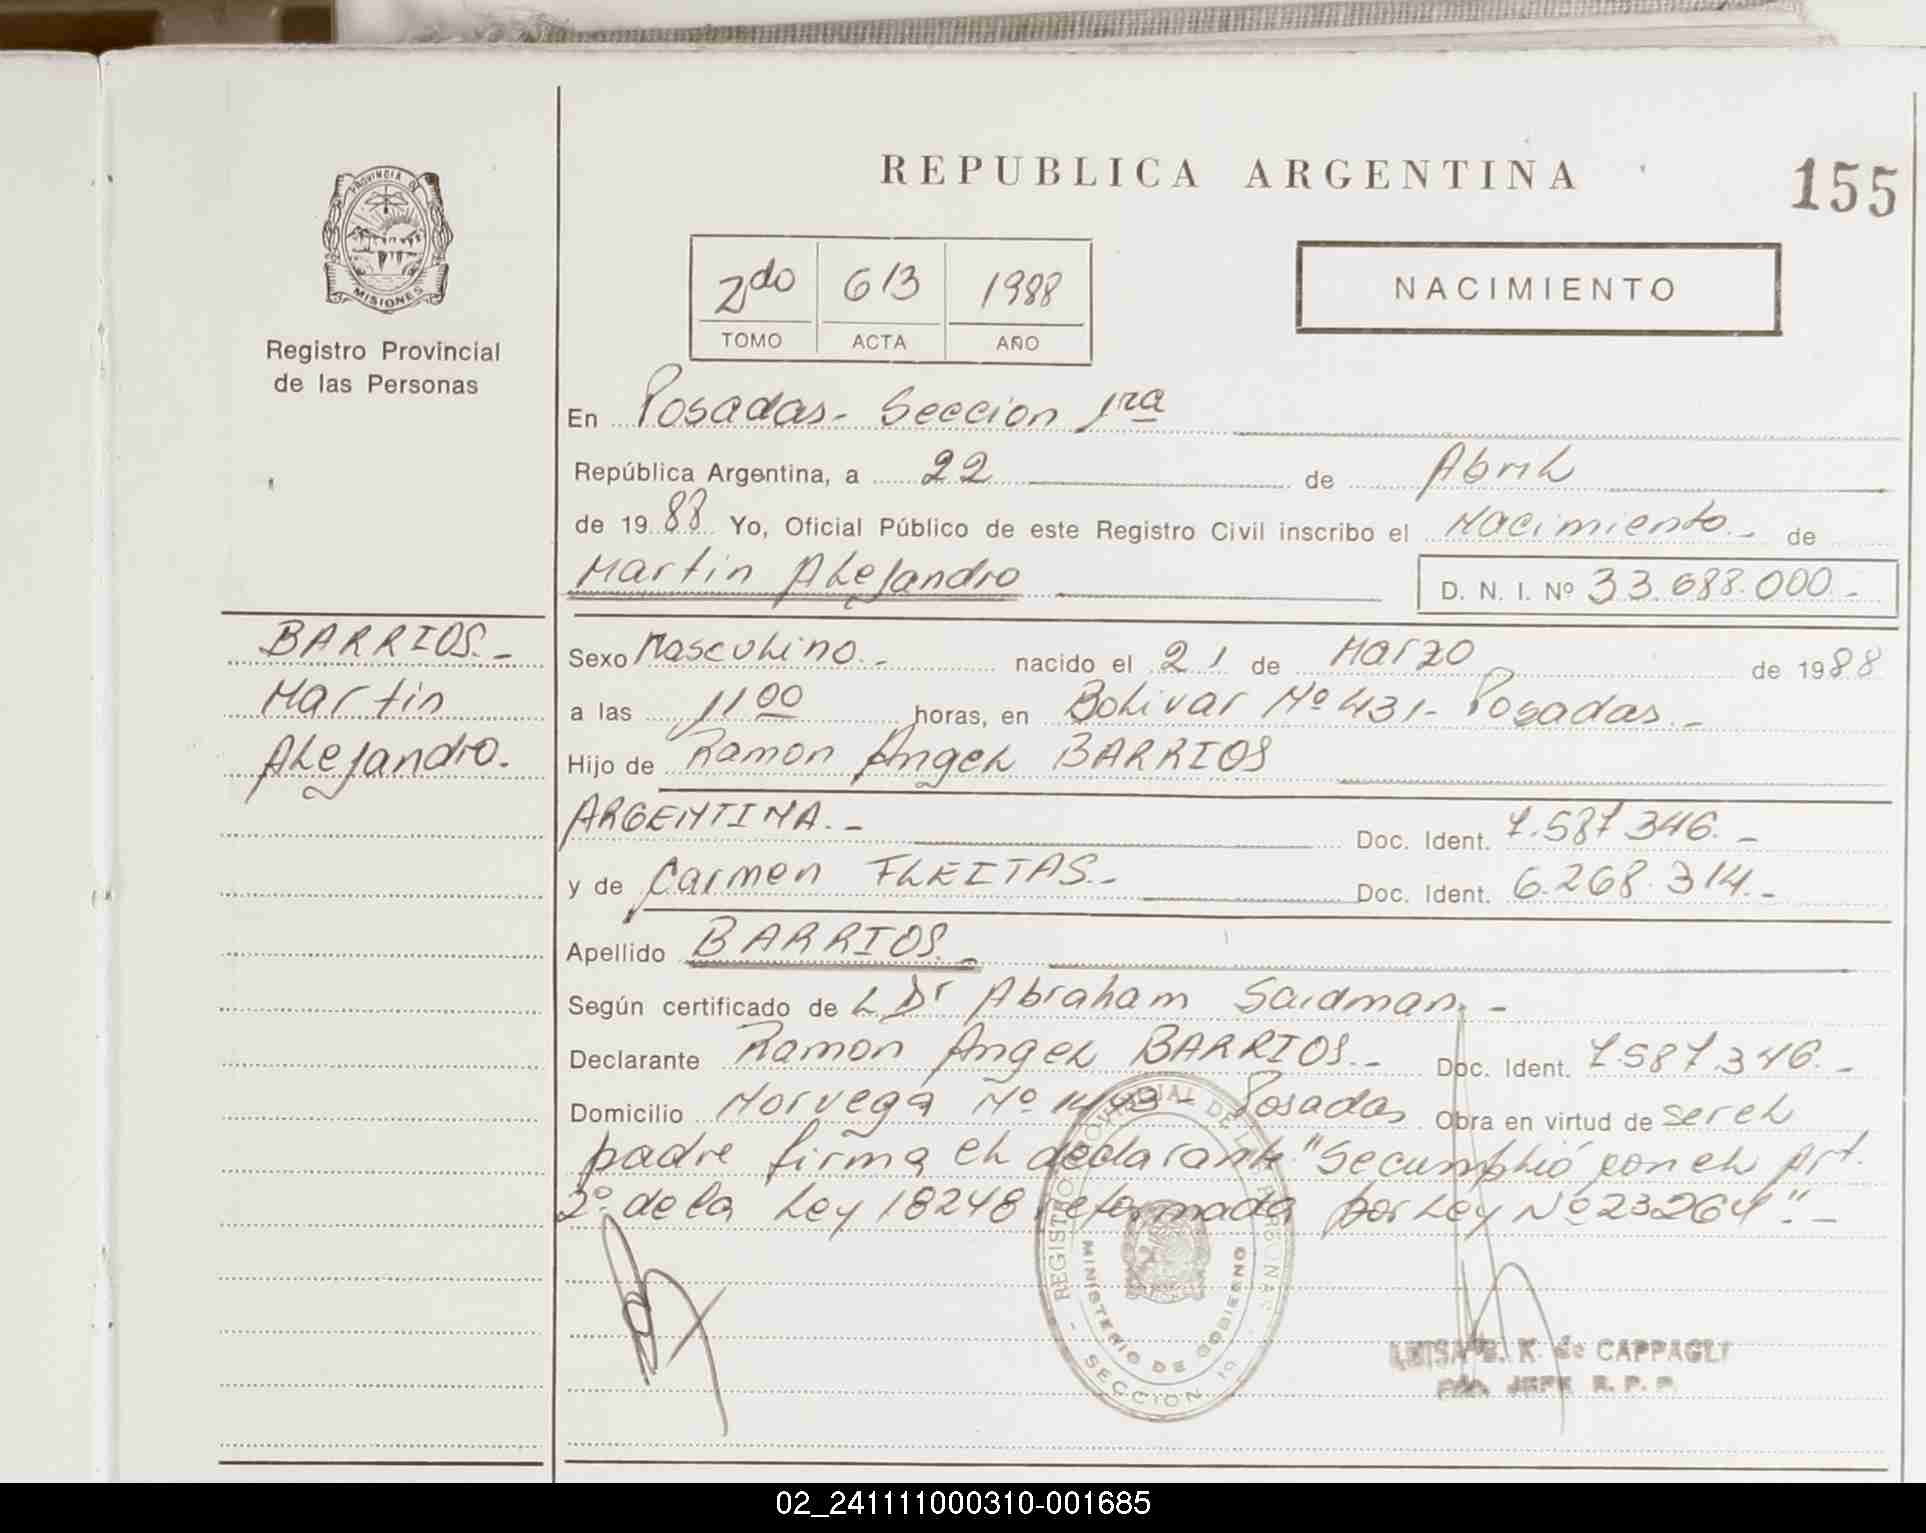 REPUBLICA ARGENTINA
155
PROVINCIA DE
MISIONES
Registro Provincial
de las Personas
2do 613 1988
TOMO ACTA AÑO
NACIMIENTO
En Posadas - Seccion 1ra
República Argentina, a 22 de Abril
de 1988 Yo, Oficial Público de este Registro Civil inscribo el Nacimiento - de
Martin Alejandro
D. N. I. Nº 33.688.000 -
BARRIOS -
Martin
Alejandro.
Sexo Masculino - nacido el 21 de Marzo de 1988
a las 11 00 horas, en Bolivar Nº 431 - Posadas -
Hijo de Ramon Angel BARRIOS
ARGENTINA. - Doc. Ident. 7.587.346. -
y de Carmen FLEITAS. - Doc. Ident. 6.268.314. -
Apellido BARRIOS. -
Según certificado de L Dr Abraham Saidman. -
Declarante Ramon Angel BARRIOS. - Doc. Ident. 7.587.346. -
Domicilio Norvega Nº - Posadas Obra en virtud de ser el
padre firma el declarante "Se cumplió con el Art.
2º de la Ley 18248 reformada por Ley Nº 23264". -
REGISTRO PROVINCIAL DE LAS PERSONAS
MINISTERIO DE GOBIERNO
- SECCION 1º -
LUISA B. K. de CAPPAGLI
JEFE R. P. P.
02_241111000310-001685